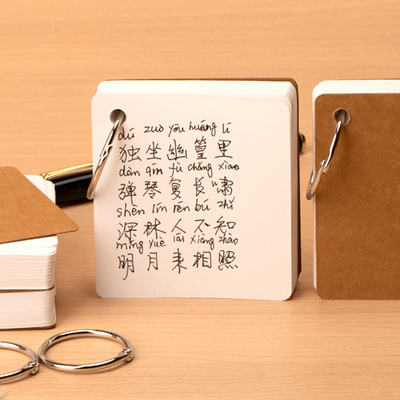 dú zuò yōu huáng lǐ
独坐幽篁里
dàn qín fù cháng xiào
弹琴复长啸
shēn lín rén bú zhī
深林人不知
míng yuè lái xiāng zhào
明月来相照